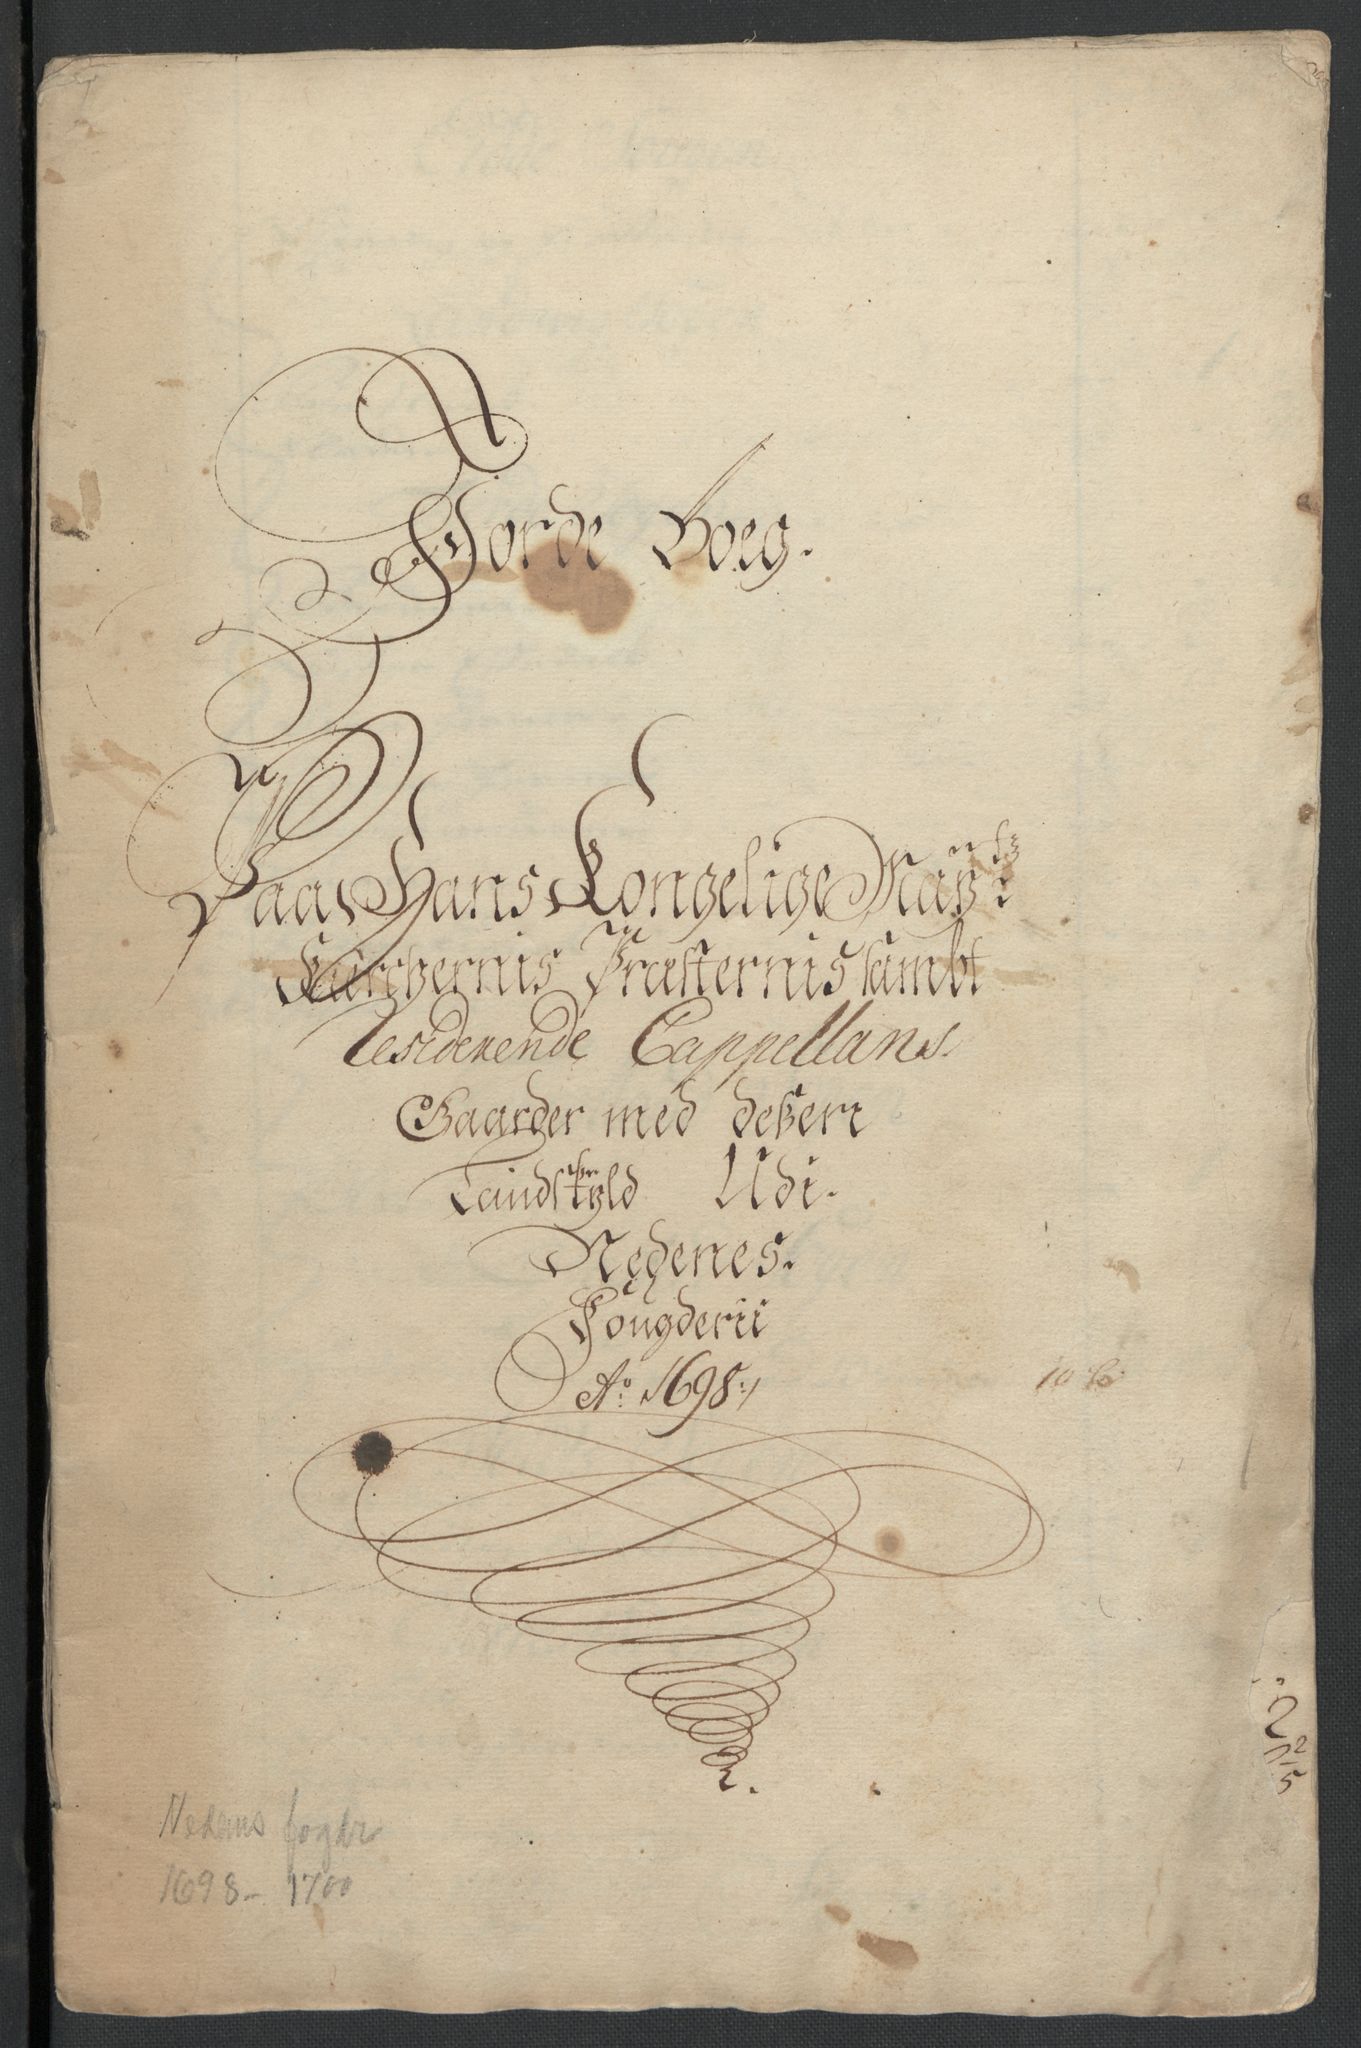 Jorde Boeg.
Paa Hans Kongelige Maÿtz:
Kürckernis Præsternis sambt
Residerende Cappellans.
Gaarder med deßere
Landskyld Udi.
Nedenes.
Fougderie
Ao: 1698:/
2 2/15
Nedenes fogdr
1698- 1700